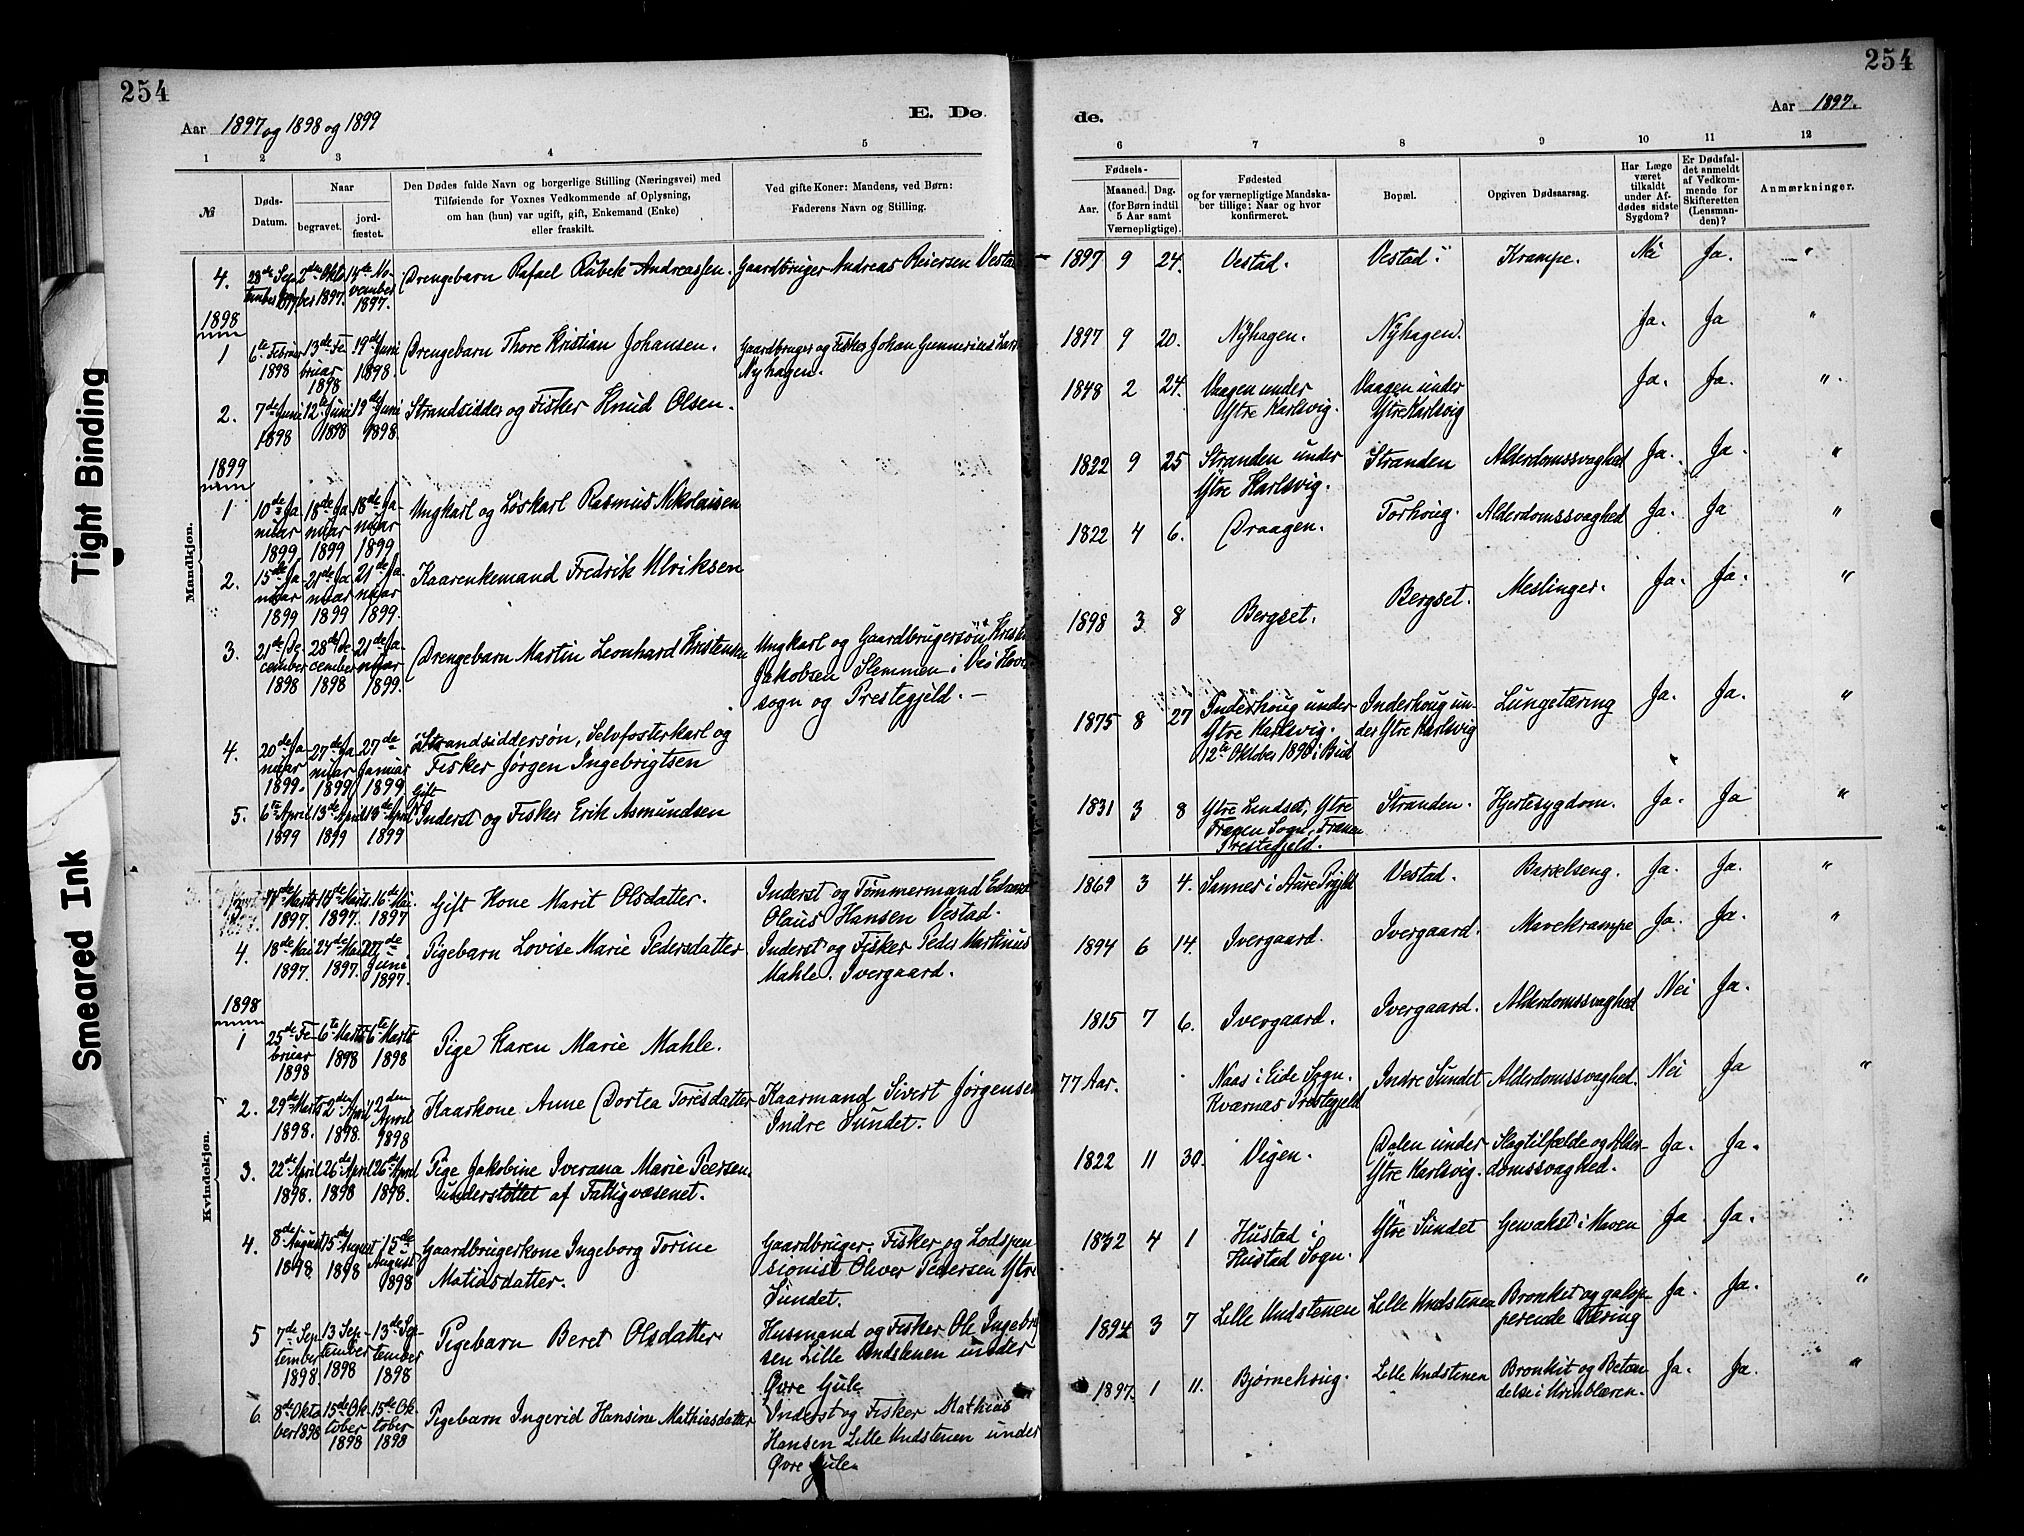 254
Aar 1897 og 1898 og 1899
E. Dø
1 2 3 4 5
№
Døds-
Datum.
Naar
begravet.
jord-
fæstet.
Den Dødes fulde Navn og borgerlige Stilling (Næringsvei) med
Tilføiende for Voxnes Vedkommende af Oplysning,
om han (hun) var ugift, gift, Enkemand (Enke)
eller fraskilt.
Ved gifte Koner: Mandens, ved Børn:
Faderens Navn og Stilling.
Mandkjøn.
4. 28de Sep 2den Okto 14de No Drengebarn Rafael Rübek Andreassen. Gaardbruger Andreas Reiersen Vestad
tember 1897. ber 1897. vember
1897.
1898
1 6te Februar 13de Fe 19de Juni Drengebarn Thore Kristian Johansen. Gaardbruger og Fisker Johan Gunnerius
1898 bruar 1898. Nyhagen.
1898
2. 7de Juni 12te Juni 19de Juni Strandsidder og Fisker Knud Olsen.
1898 1898 1898.
1899
1 10de Ja 18de Ja 18de Ja Ungkarl og Løskarl Rasmus Nikolaisen
nuar nuar nuar
1899 1899 1899
2. 15de Ja 21de Ja 21de Ja Kaarenkemand Fredrik Ulriksen
nuar nuar nuar
1899 1899 1899.
3. 21de De 28de De 21de Ja Drengebarn Martin Leonhard Kristensen Ungkarl og Gaardbrugersøn
cember cember nuar Jakobsen Slemmen i Vei
1898 1898 1899. sogn og Prestegjeld. —
4. 20de Ja 27de Ja 27de Strandsiddersøn, Selvfosterkarl og
nuar nuar Januar Fisker Jørgen Ingebrigtsen
1899. 1899 1899
Gift
5. 6te April 13de April 13de April Inderst og Fisker Erik Asmundsen
1899 1899 1899
Kvindekjøn.
17de Marts 14de Marts 16de Mai Gift Kone Marit Olsdatter. Inderst og Tømmermand
1897. 1897. 1897 Olaus Hansen Vestad.
4. 18de Mai 24de Mai 27de Pigebarn Lovise Marie Pedersdatter Inderst og Fisker Peder Martinus
1897. 1897. Juni Mahle. Ivergaard.
1897.
1898
1 25de Fe 6te Marts 6te Marts Pige Karen Marie Mahle.
bruar 1898 1898
1898
2. 29de Marts 2den April 2den Kaarkone Anne Dortea Toresdatter Kaarmand Sivert Jørgensen
1898. 1898. April Indre Sundet.
1898
3. 22de April 26de April 26de April Pige Jakobine Iverana Marie Peersen.
1898. 1898 1898. understøttet af Fattigvæsenet.
4. 8de August 15de August 15de Gaardbrugerkone Ingeborg Torine Gaardbruger, Fisker og Lodspen
1898. 1898 August Matiasdatter. sionist Oliver Pedersen Ytre
1898 Sundet.
5 7de Sep 13 Sep- 13de Sep- Pigebarn Beret Olsdatter Husmand og Fisker Ole Ingebrigt
tember tember tember sen Lille Undstenen under
1898. 1898 1898 Øvre Gule
6. 8de Okto 15de Ok 15de Ok Pigebarn Ingerid Hansine Mathiasdatter Inderst og Fisker Mathias
ber 1898 tober tober Hansen Lille Undstenen under
1898 1898 Øvre Gule
254
de.
Aar 1897.
6 7 8 9 10 11 12
Fødsels-
Aar.
Maaned. Dag.
(for Børn indtil
5 Aar samt
Værnepligtige).
Fødested
og for værnepligtige Mandska-
ber tillige: Naar og hvor
konfirmeret.
Bopæl.
Opgiven Dødsaarsag.
Har Læge
været
tilkaldt
under Af-
dødes sidste
Sygdom?
Er Dødsfal-
det anmeldt
af Vedkom-
mende for
Skifteretten
(Lensman-
den)?
Anmærkninger.
1897 9 24. Vestad. Vestad. Krampe. Nei Ja. "
1897 9 20. Nyhagen. Nyhagen. Ja. Ja "
1848 2 24. Vaagen under Vaagen under Ja. Ja. "
Ytre Karlsvig. Ytre Karlsvig
1822 9 25 Stranden under Stranden Alderdomssvaghed Ja. Ja. "
Ytre Karlsvig.
1822 4 6. Draagen. Torhoug. Alderdomssvaghed Ja. Ja "
1898 3 8 Bergset. Bergset. Meslinger. Ja. Ja. "
1875 8 27 Inderhoug under Inderhoug un- Lungetæring Ja. Ja. "
Ytre Karlsvig. der Ytre Karlsvig
12te Oktober 1890 i Bud
1831 3 8 Ytre Lindset, Ytre Stranden. Hjertesygdom. Ja. Ja "
Frænen Sogn, Frænen
Prestegjeld.
1869 3 4. Sanner i Aure Prgjeld Vestad. Barselseng. Ja. Ja. "
1894 6 14. Ivergaard. Ivergaard. Mavekrampe Ja. Ja. "
1815 7 6. Ivergaard. Ivergaard. Alderdomssvaghed Nei Ja.
77 Aar. Naas i Eide Sogn. Indre Sundet Alderdomssvaghed. Nei Ja "
Kværnæs Prestegjeld
1822 11 30. Vigen. Dalen under Slagtilfælde og Alder-
Ytre Karlsvig. domssvaghed. Ja. Ja.
1832 4 1 Hustad i Ytre Sundet Gevækst i Maven Ja Ja.
Hustad Sogn.
1894 3 7 Lille Undstenen Lille Undstenen Bronkit og galop- Ja. Ja. "
perende Tæring
1897. 1 11. Bjørnehoug. Lille Undstenen Bronkit og Betæn Ja. Ja. "
delse i Urinblæren.
Tight Binding
Smeared Ink